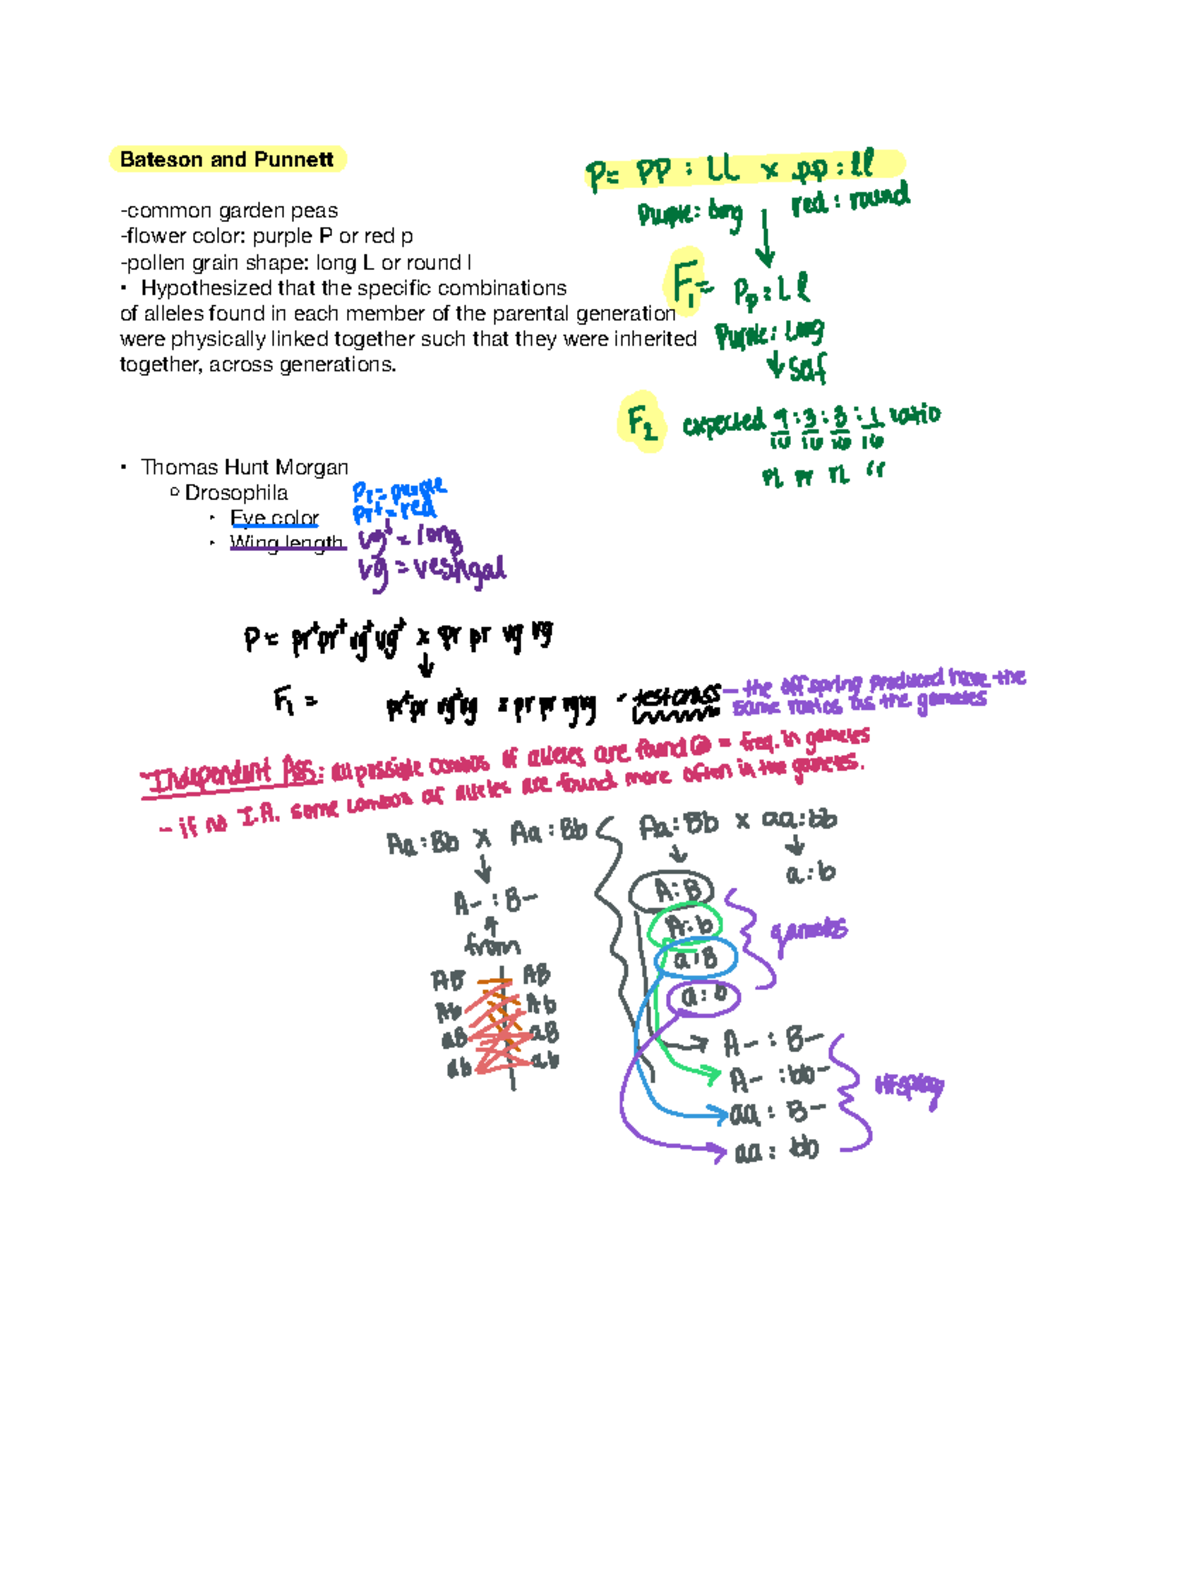 Bateson and Punnett
-common garden peas
-flower color: purple P or red p
-pollen grain shape: long L or round l
• Hypothesized that the specific combinations
of alleles found in each member of the parental generation
were physically linked together such that they were inherited
together, across generations.
P= PP : LL x pp : ll
Purple: long red : round
F1= Pp : Ll
Purple: Long
↓ self
F2 expected 9 : 3 : 3 : 1 ratio
16 16 16 16
PL Pr rL rr
• Thomas Hunt Morgan
Drosophila
Eye color
Wing length
Pr = purple
Pr+ = red
vg+ = long
vg = vestigal
P = pr+pr+ vg+vg+ x pr pr vg vg
F1 = pr+pr vg+vg x pr pr vgvg - testcross
- the offspring produced have the
same ratios as the gametes
Independent Ass: all possible combos of alleles are found @ = freq. in gametes
- if no I.A. some combos of alleles are found more often in the gametes.
Aa : Bb x Aa : Bb
A- : B-
from
AB AB
Ab Ab
aB aB
ab ab
Aa : Bb x aa : bb
a : b
A : B
A : b
a : B
a : b
gametes
A- : B-
A- : bb-
aa : B-
aa : bb